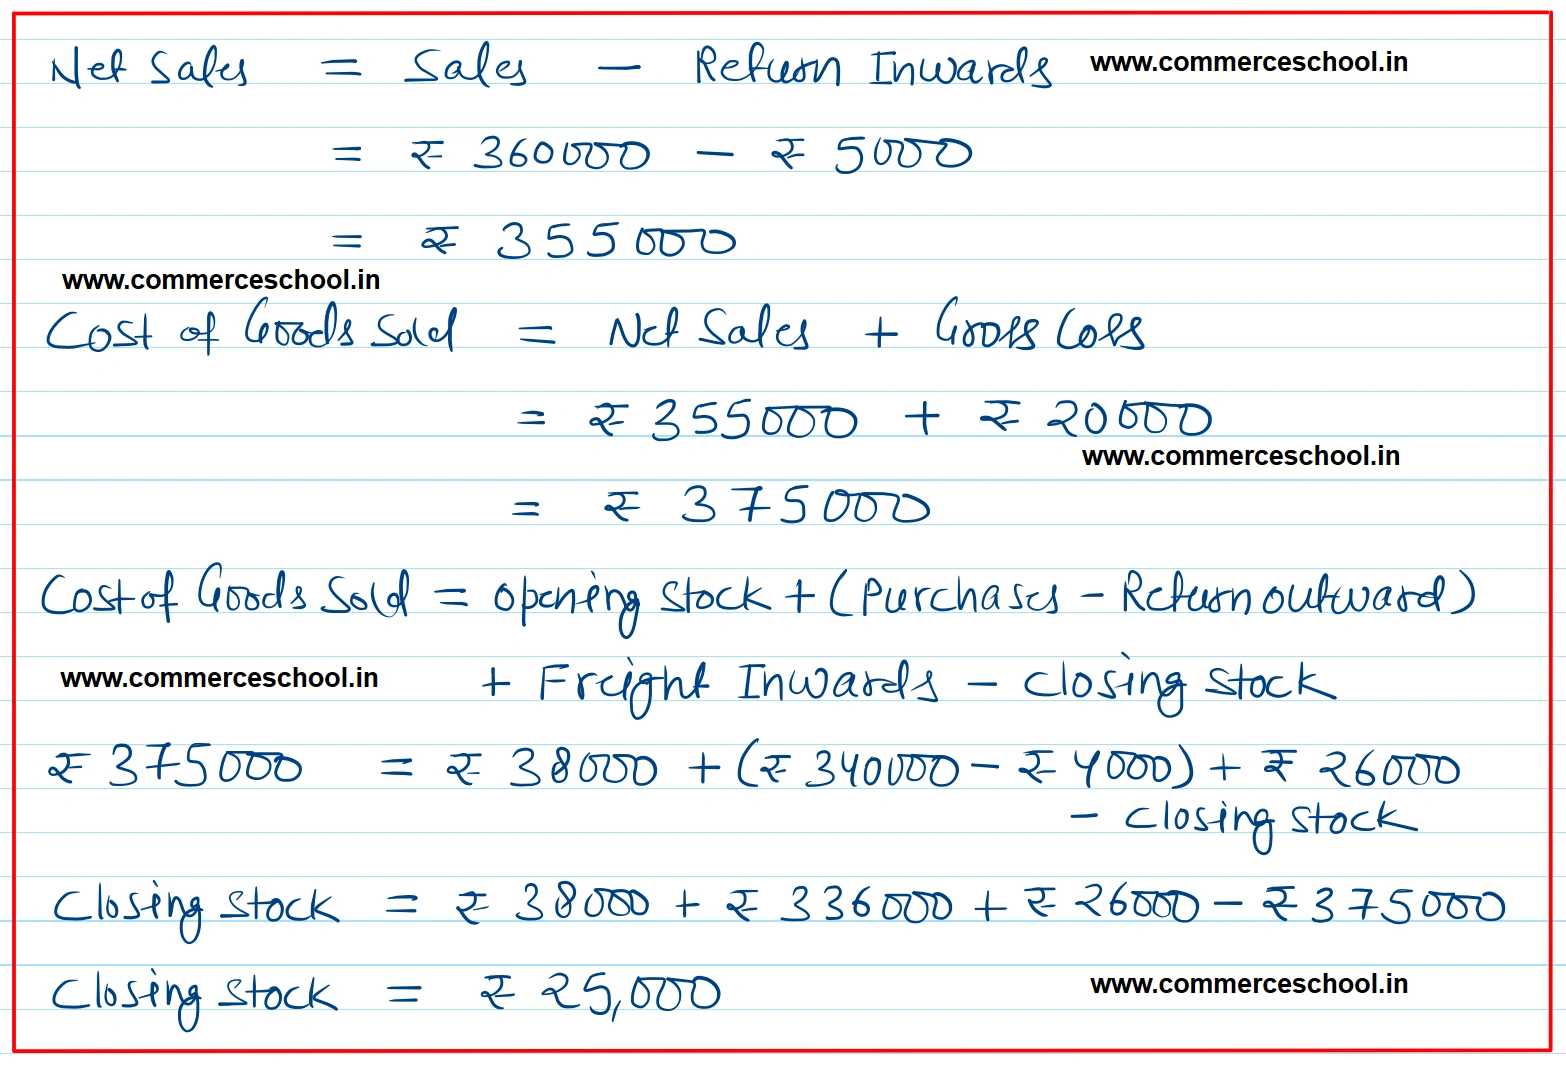 Net Sales = Sales - Return Inwards www.commerceschool.in
= ₹ 360000 - ₹ 5000
= ₹ 355000
www.commerceschool.in
Cost of Goods Sold = Net Sales + Gross Loss
= ₹ 355000 + ₹ 20000
www.commerceschool.in
= ₹ 375000
Cost of Goods Sold = opening stock + (Purchases - Return outward)
www.commerceschool.in + Freight Inwards - closing stock
₹ 375000 = ₹ 38000 + (₹ 340000 - ₹ 4000) + ₹ 26000
- closing stock
Closing stock = ₹ 38000 + ₹ 336000 + ₹ 26000 - ₹ 375000
Closing stock = ₹ 25,000 www.commerceschool.in